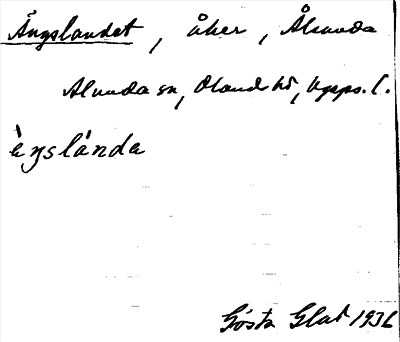 Ängslandet, åker, Ålsunda
Alunda sn, Oland hd, Upps. l.
ä̀ŋslánda
Gösta Glad 1936